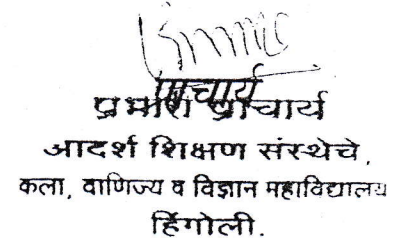 प्राचार्य
प्रभारी प्राचार्य
आदर्श शिक्षण संस्थेचे,
कला, वाणिज्य व विज्ञान महाविद्यालय
हिंगोली.